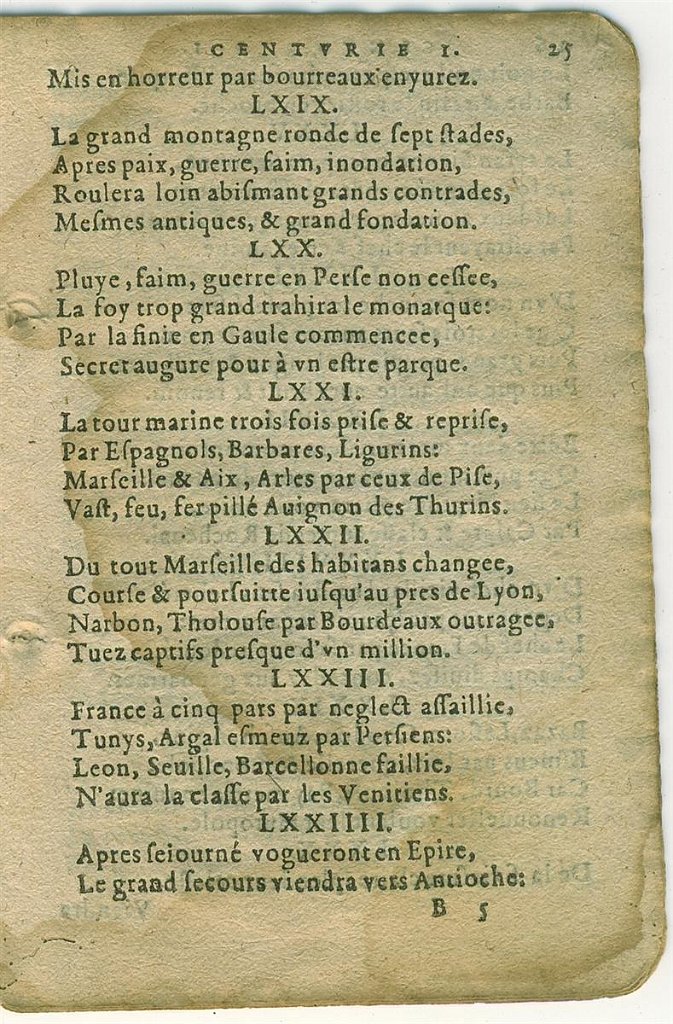 CENTVRIE I. 25
Mis en horreur par bourreaux enyurez.
LXIX.
La grand montagne ronde de ſept ſtades,
Apres paix, guerre, faim, inondation,
Roulera loin abiſmant grands contrades,
Meſmes antiques, & grand fondation.
LXX.
Pluye, faim, guerre en Perſe non ceſſee,
La foy trop grand trahira le monarque:
Par la finie en Gaule commencee,
Secret augure pour à vn eſtre parque.
LXXI.
La tour marine trois fois priſe & repriſe,
Par Eſpagnols, Barbares, Ligurins:
Marſeille & Aix, Arles par ceux de Piſe,
Vaſt, feu, fer pillé Auignon des Thurins.
LXXII.
Du tout Marſeille des habitans changee,
Courſe & pourſuitte iuſqu'au pres de Lyon,
Narbon, Tholouſe par Bourdeaux outragee,
Tuez captifs preſque d'vn million.
LXXIII.
France à cinq pars par neglect aſſaillie,
Tunys, Argal eſmeuz par Perſiens:
Leon, Seuille, Barcellonne faillie,
N'aura la claſſe par les Venitiens.
LXXIIII.
Apres ſeiourné vogueront en Epire,
Le grand ſecours viendra vers Antioche:
B 5